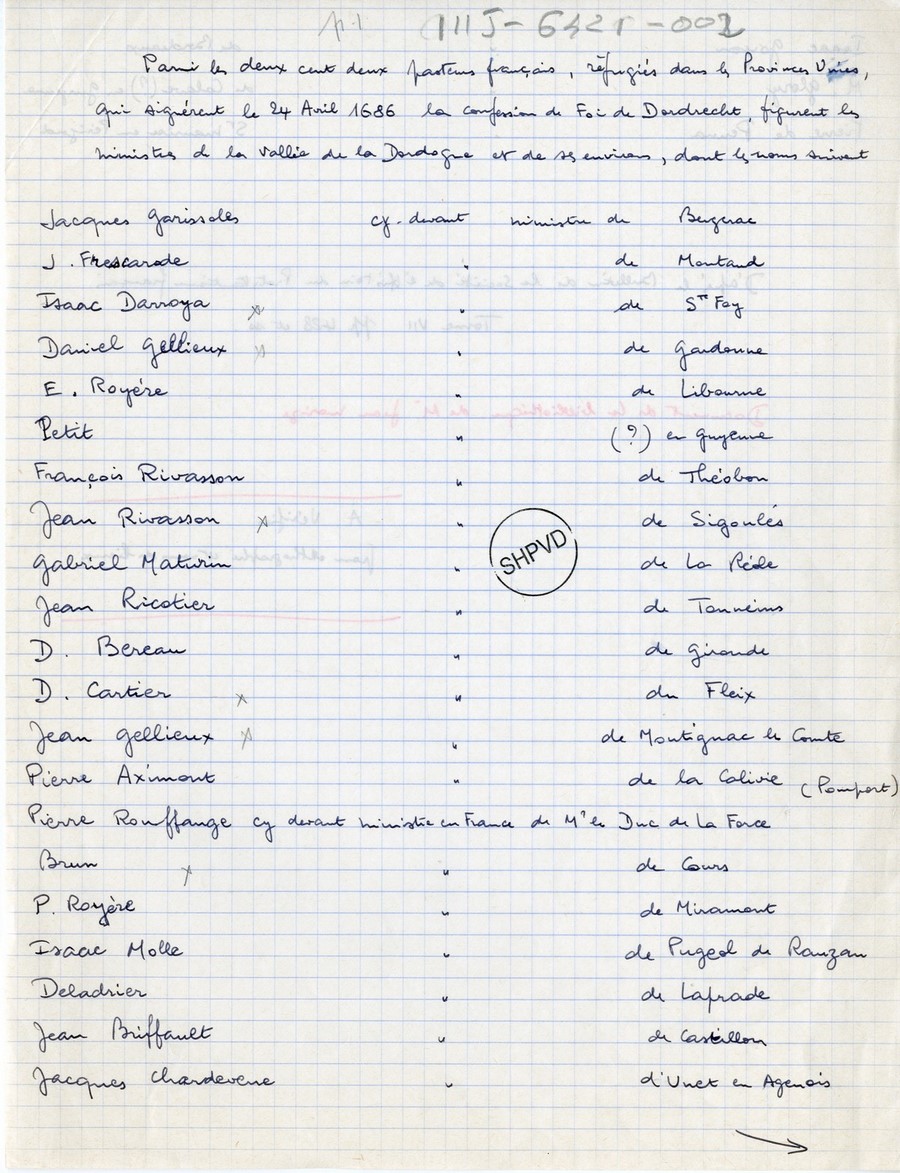 p.1 111J-6421-001
Parmi les deux cent deux pasteurs français, réfugiés dans les Provinces Unies,
qui signérent le 24 Avril 1686 la confession de Foi de Dordrecht, figurent les
ministres de la vallée de la Dordogne et de ses environs, dont les noms suivent
Jacques Garissoles cy-devant ministre de Bergerac
J. Frescarode " de Montaud
Isaac Darroya x " de Ste Foy
Daniel Gellieux x " de Gardonne
E. Royére " de Libourne
Petit " (?) en Guyenne
François Rivasson " de Théobon
Jean Rivasson x " de Sigoulés
SHPVD
Gabriel Maturin " de La Réole
Jean Ricotier " de Tonneins
D. Bereau " de Gironde
D. Cartier x " du Fleix
Jean Gellieux x " de Montignac le Comte
Pierre Aximont " de la Calivie (Pomport)
Pierre Rouffange cy devant ministre en France de Mr le Duc de La Force
Brun x " de Cours
P. Royère " de Miramont
Isaac Molle " de Pugeol de Rauzan
Deladrier " de Laprade
Jean Briffault " de Castillon
Jacques Chardevene " d'Unet en Agenois